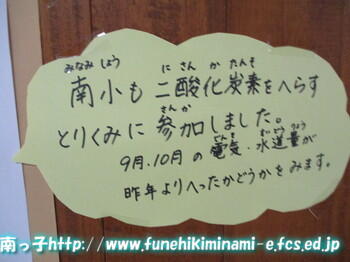 みなみしょう にさんかたんそ
南小も 二酸化炭素をへらす
さんか
とりくみに 参加しました。
でんき すいどうりょう
9月、10月の 電気・水道量が
昨年よりへったかどうかをみます。
南っ子http://www.funehikiminami-e.fcs.ed.jp